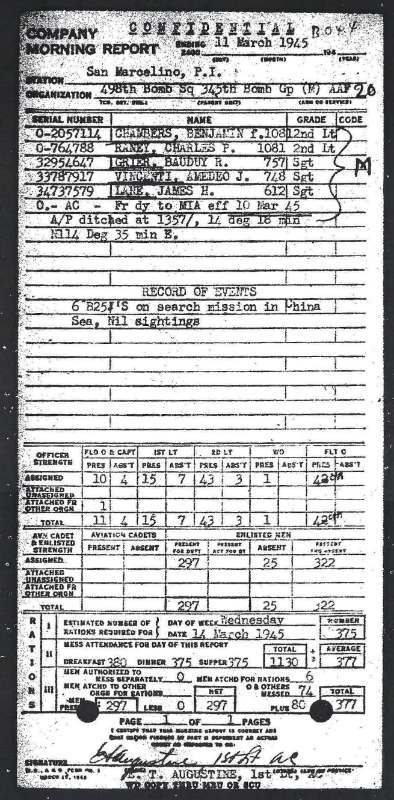 CONFIDENTIAL Box 4
COMPANY
MORNING REPORT ENDING 2400 11 March 1945
(DAY) (MONTH) (YEAR)
STATION San Marcelino, P.I.
ORGANIZATION 498th Bomb Sq 345th Bomb Gp (M) AAF 20
(PARENT UNIT) (ARM OR SERVICE)
SERIAL NUMBER NAME GRADE CODE
O-2057114 CHAMBERS, BENJAMIN f. 1081 2nd Lt
O-764788 RANEY, CHARLES P. 1081 2nd Lt
32954647 GRIER, BAUDUY R. 757 Sgt M
33787917 VINCENTI, AMEDEO J. 748 Sgt
34737579 LANE, JAMES H. 612 Sgt
O.- AC - Fr dy to MIA eff 10 Mar 45
A/P ditched at 1357/, 14 deg 18 min
N114 Deg 35 min E.
RECORD OF EVENTS
6 B25J'S on search mission in China
Sea, Nil sightings
OFFICER STRENGTH FLD O & CAPT 1ST LT 2D LT WO FLT O
PRES ABS'T PRES ABS'T PRES ABS'T PRES ABS'T PRES ABS'T
ASSIGNED 10 4 15 7 43 3 1 42
ATTACHED UNASSIGNED
ATTACHED FR OTHER ORGN 1
TOTAL 11 4 15 7 43 3 1 42
AVN CADET & ENLISTED STRENGTH AVIATION CADETS ENLISTED MEN
PRESENT ABSENT PRESENT FOR DUTY PRESENT ABSENT PRESENT AND ABSENT
ASSIGNED 297 25 322
ATTACHED UNASSIGNED
ATTACHED FR OTHER ORGN
TOTAL 297 25 322
RATIONS
I ESTIMATED NUMBER OF RATIONS REQUIRED FOR DAY OF WEEK Wednesday NUMBER
DATE 14 March 1945 375
II MESS ATTENDANCE FOR DAY OF THIS REPORT TOTAL ÷ 3 AVERAGE
BREAKFAST 380 DINNER 375 SUPPER 375 1130 377
III MEN AUTHORIZED TO MESS SEPARATELY 0 MEN ATCHD FOR RATIONS 6
MEN ATCHD TO OTHER ORGN FOR RATIONS NET O & OTHERS MESSED 74 TOTAL
MEN PRES 297 LESS 0 297 PLUS 80 377
PAGE 1 OF 1 PAGES
I CERTIFY THAT THIS MORNING REPORT IS CORRECT AND
SIGNATURE Augustine 1st Lt AC
T. AUGUSTINE, 1st Lt, AC